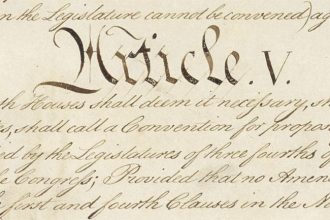 n the Legislature cannot be convened) ag
Article. V.
th Houses shall deem it necessary, sh
ts, shall call a Convention for propos
ed by the Legislatures of three fourths
le Congress; Provided that no Amen
he first and fourth Clauses in the N